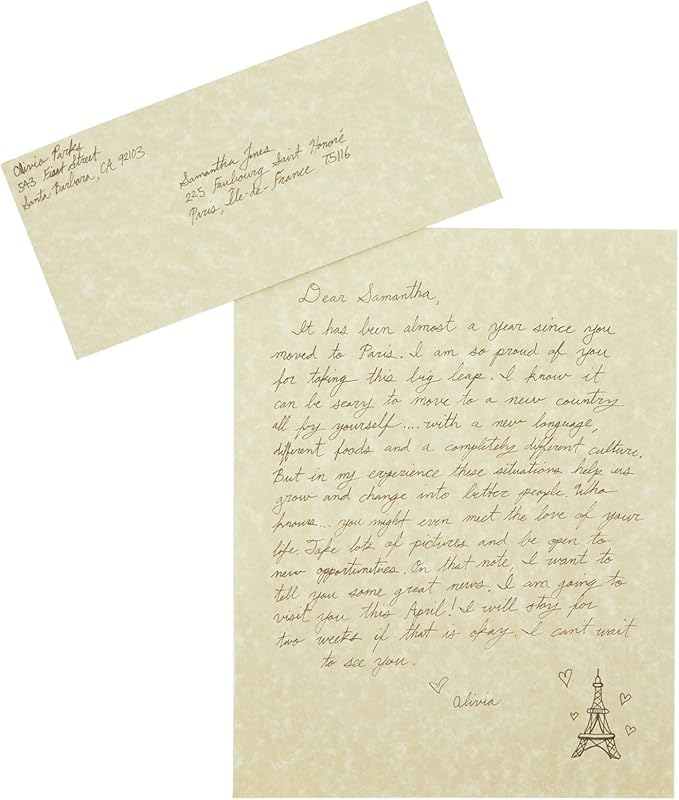 Olivia Parks
543 First Street
Santa Barbara, CA 92103
Samantha Jones
225 Faubourg Saint Honoré
Paris, Île-de-France 75116
Dear Samantha,
It has been almost a year since you
moved to Paris. I am so proud of you
for taking this big leap. I know it
can be scary to move to a new country
all by yourself....with a new language,
different foods and a completely different culture.
But in my experience these situations help us
grow and change into better people. Who
knows... you might even meet the love of your
life. Take lots of pictures and be open to
new opportunities. On that note, I want to
tell you some great news. I am going to
visit you this April! I will stay for
two weeks if that is okay. I can't wait
to see you.
Olivia